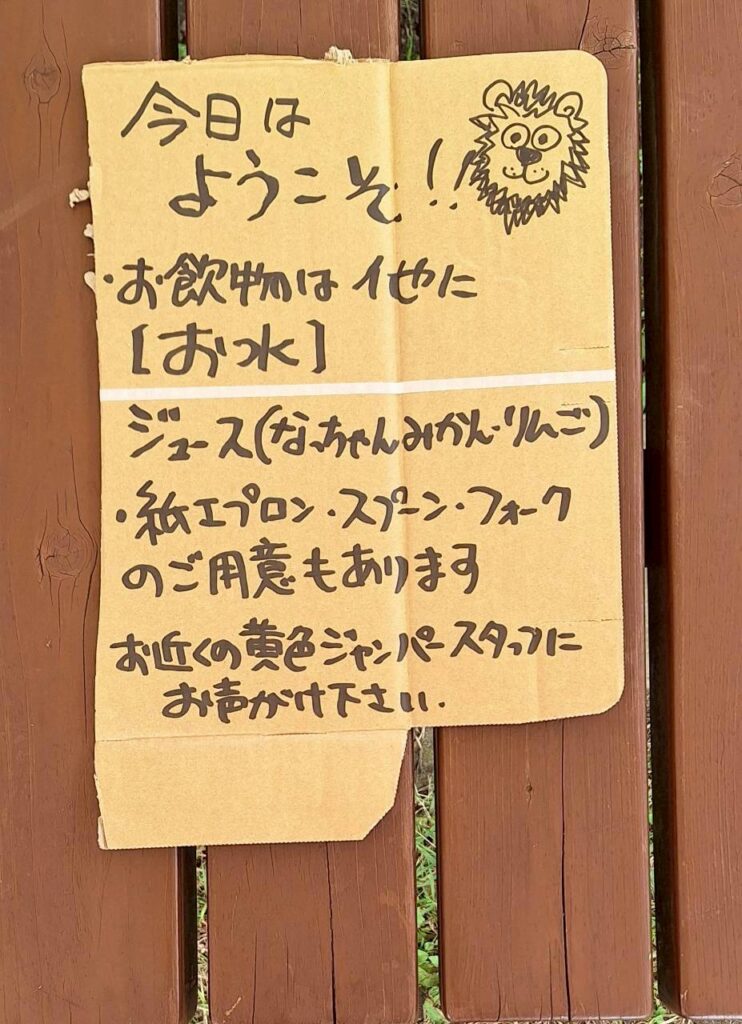 今日は
ようこそ!!
・お飲物は他に
[お水]
ジュース(なっちゃんみかん・りんご)
・紙エプロン・スプーン・フォーク
のご用意もあります
お近くの黄色ジャンパースタッフに
お声がけ下さい.